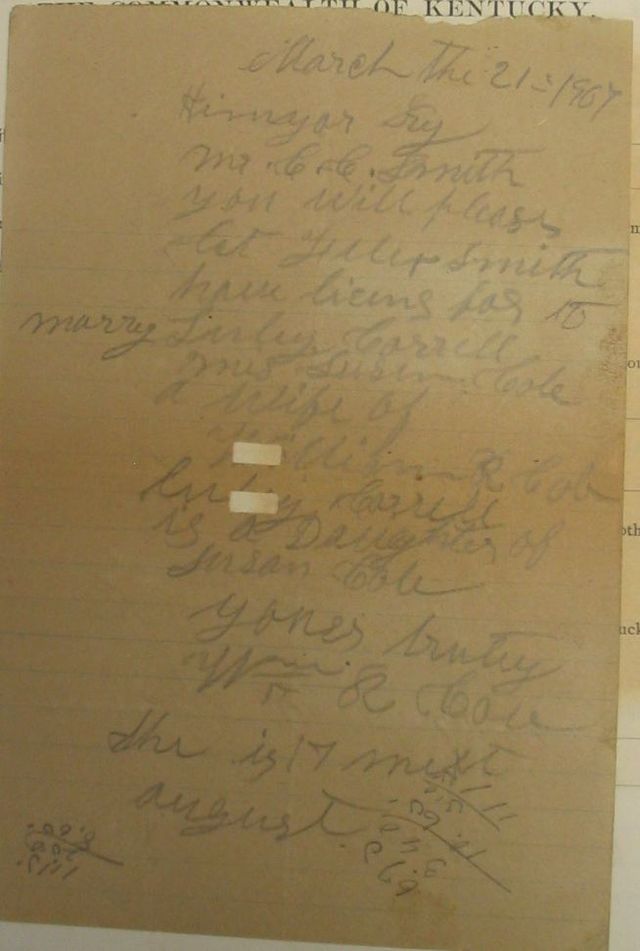 THE COMMONWEALTH OF KENTUCKY.
March the 21= 1907
Himyar Ky
Mr. C. C. Smith
you will pleas
let Smith
have licens for to
marry Correll
Mrs Susan Cole
a wife of
William R Cole
Correll
is a Daughter of
Susan Cole
yours truley
Wm R Cole
She is 17 next
august